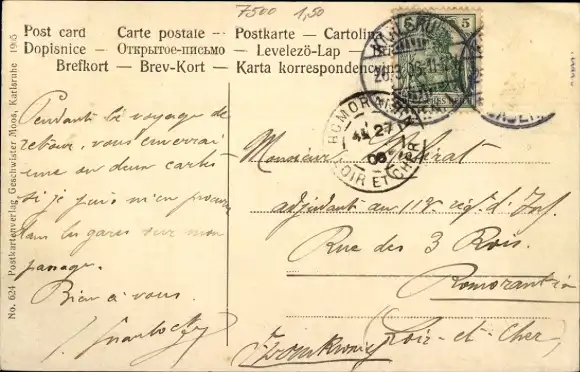 7500 1,50
Post card — Carte postale — Postkarte — Cartolina
Dopisnice — Открытое-письмо — Levelező-Lap
Brefkort — Brev-Kort — Karta korrespondency
5 5
ROMORANTIN
27
06
LOIR ET CHER
Pendant le voyage de
retour, vous enverrai
une ou deux cartes
si je puis m'en procurer
dans les gares sur mon
passage.
Bien à vous.
Monsieur
adjudant au 113e rég. d'Inf.
Rue des 3 Rois.
Romorantin
(Loir-et-Cher)
Frankreich
No. 624 Postkartenverlag Geschwister Moos, Karlsruhe 1905